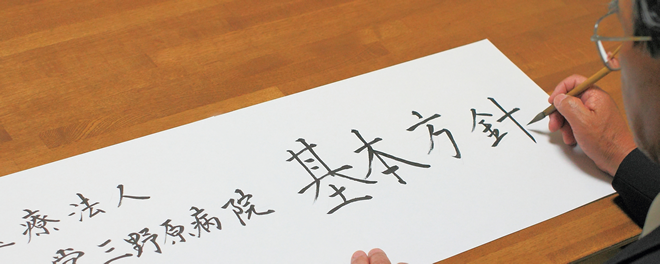 療法人
堂三野原病院
基本方針